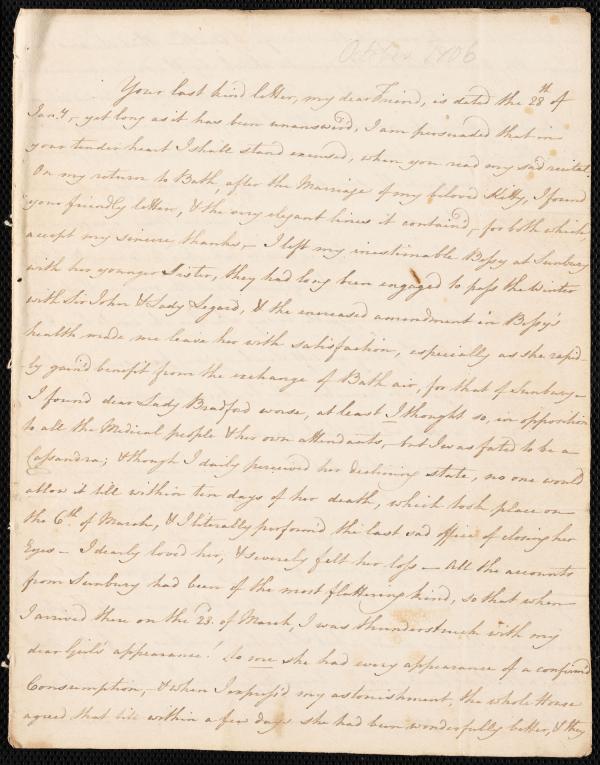 October 1806
Your last kind letter, my dear Friend, is dated the 28th of
Jany, - yet long as it has been unanswer'd, I am persuaded that in
your tender heart I shall stand excused, when you read my sad recital.
On my return to Bath, after the Marriage of my beloved Kitty, I found
your friendly letter, & the very elegant lines it contain'd, for both which,
accept my sincere thanks, - I left my inestimable Bessy at Sunbury
with her younger Sister, they had long been engaged to pass the Winter
with Sir John & Lady Legard, & the encreased amendment in Bessy's
health made me leave her with satisfaction, especially as she rapid-
ly gain'd benefit from the exchange of Bath air, for that of Sunbury -
I found dear Lady Bradford worse, at least I thought so, in opposition
to all the Medical people & her own attendants, but I was fated to be a
Cassandra; & though I daily perceived her declining state, no one would
allow it till within ten days of her death, which took place on
the 6th of March, & I literally perform'd the last sad office of closing her
Eyes - I dearly loved her, & severely felt her loss - All the accounts
from Sunbury had been of the most flattering kind, so that when
I arrived there on the 23d of March, I was thunderstruck with my
dear Girl's appearance! to me she had every appearance of a confirm'd
Consumption, - & when I express'd my astonishment, the whole House
agreed that till within a few days she had been wonderfully better, & they